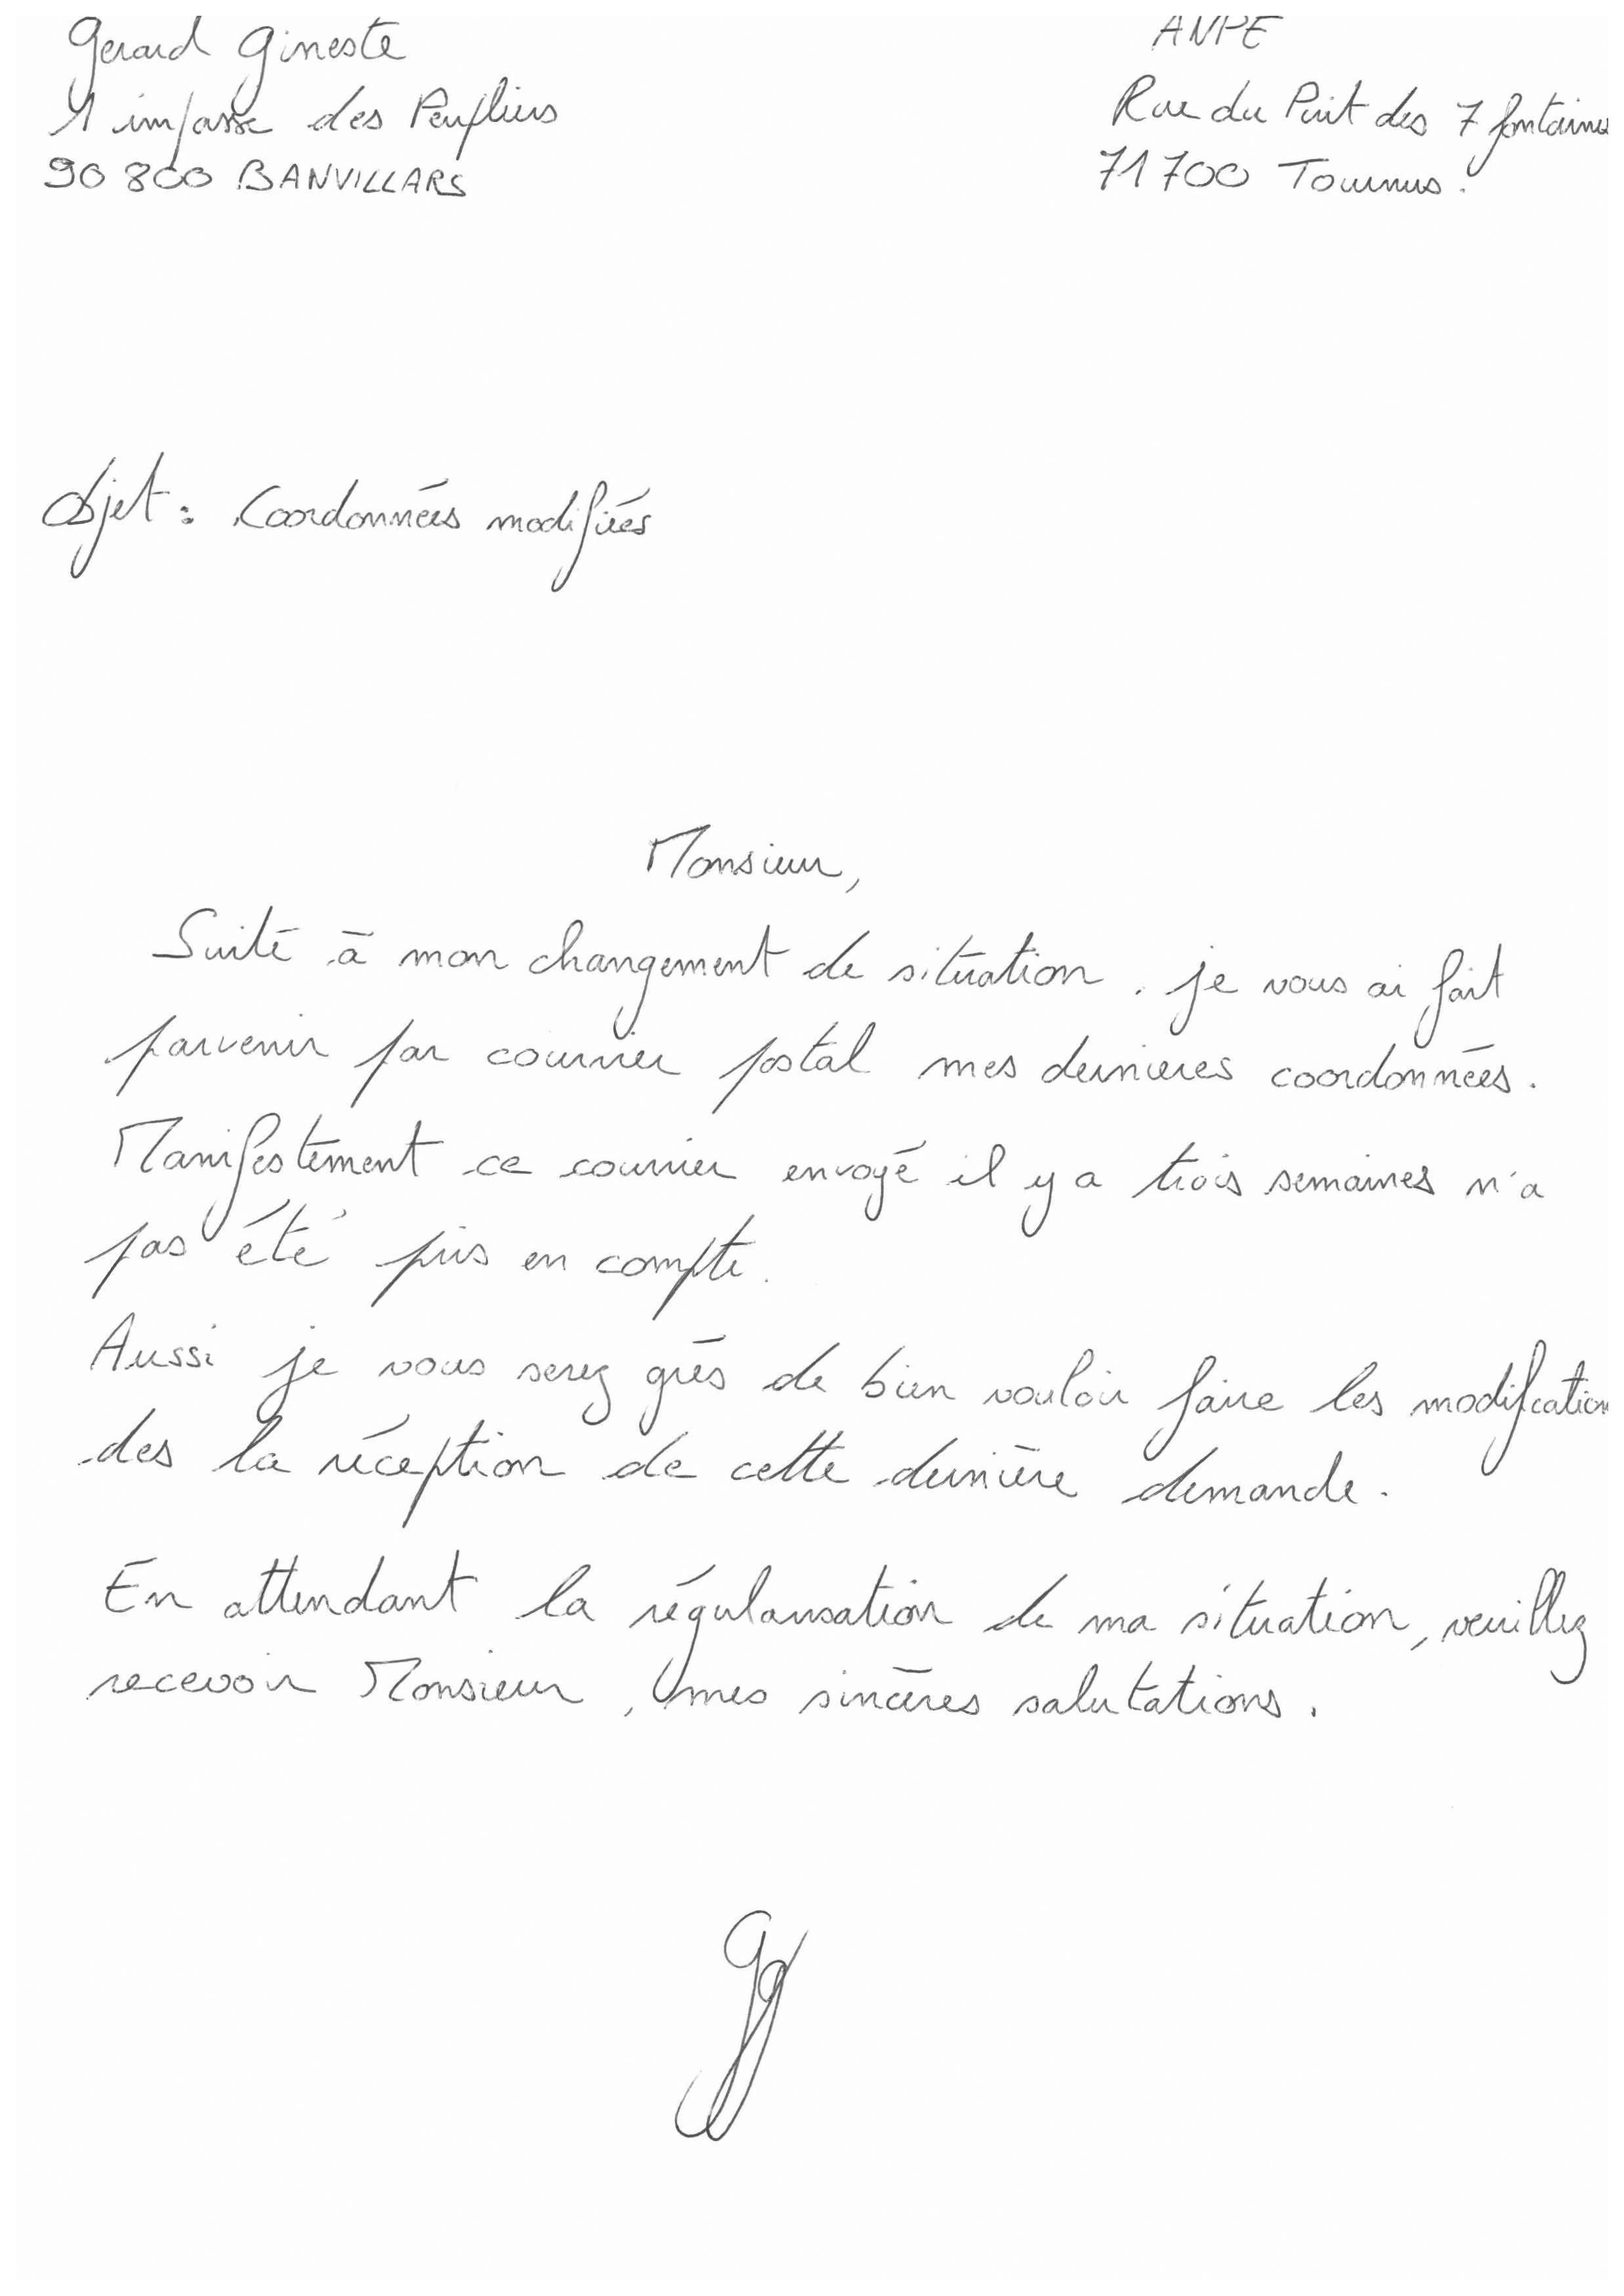 Gerard Gineste
1 impasse des Peupliers
90 800 BANVILLARS
ANPE
Rue du Puit des 7 fontaines
71700 Tournus.
Objet : Coordonnées modifiées
Monsieur,
Suite à mon changement de situation. je vous ai fait
parvenir par courrier postal mes dernieres coordonnées.
Manifestement ce courrier envoyé il y a trois semaines n'a
pas été pris en compte.
Aussi je vous serez grés de bien vouloir faire les modifcation
des la réception de cette dernière demande.
En attendant la régularisation de ma situation, veuillez
recevoir Monsieur, mes sincères salutations.
GG